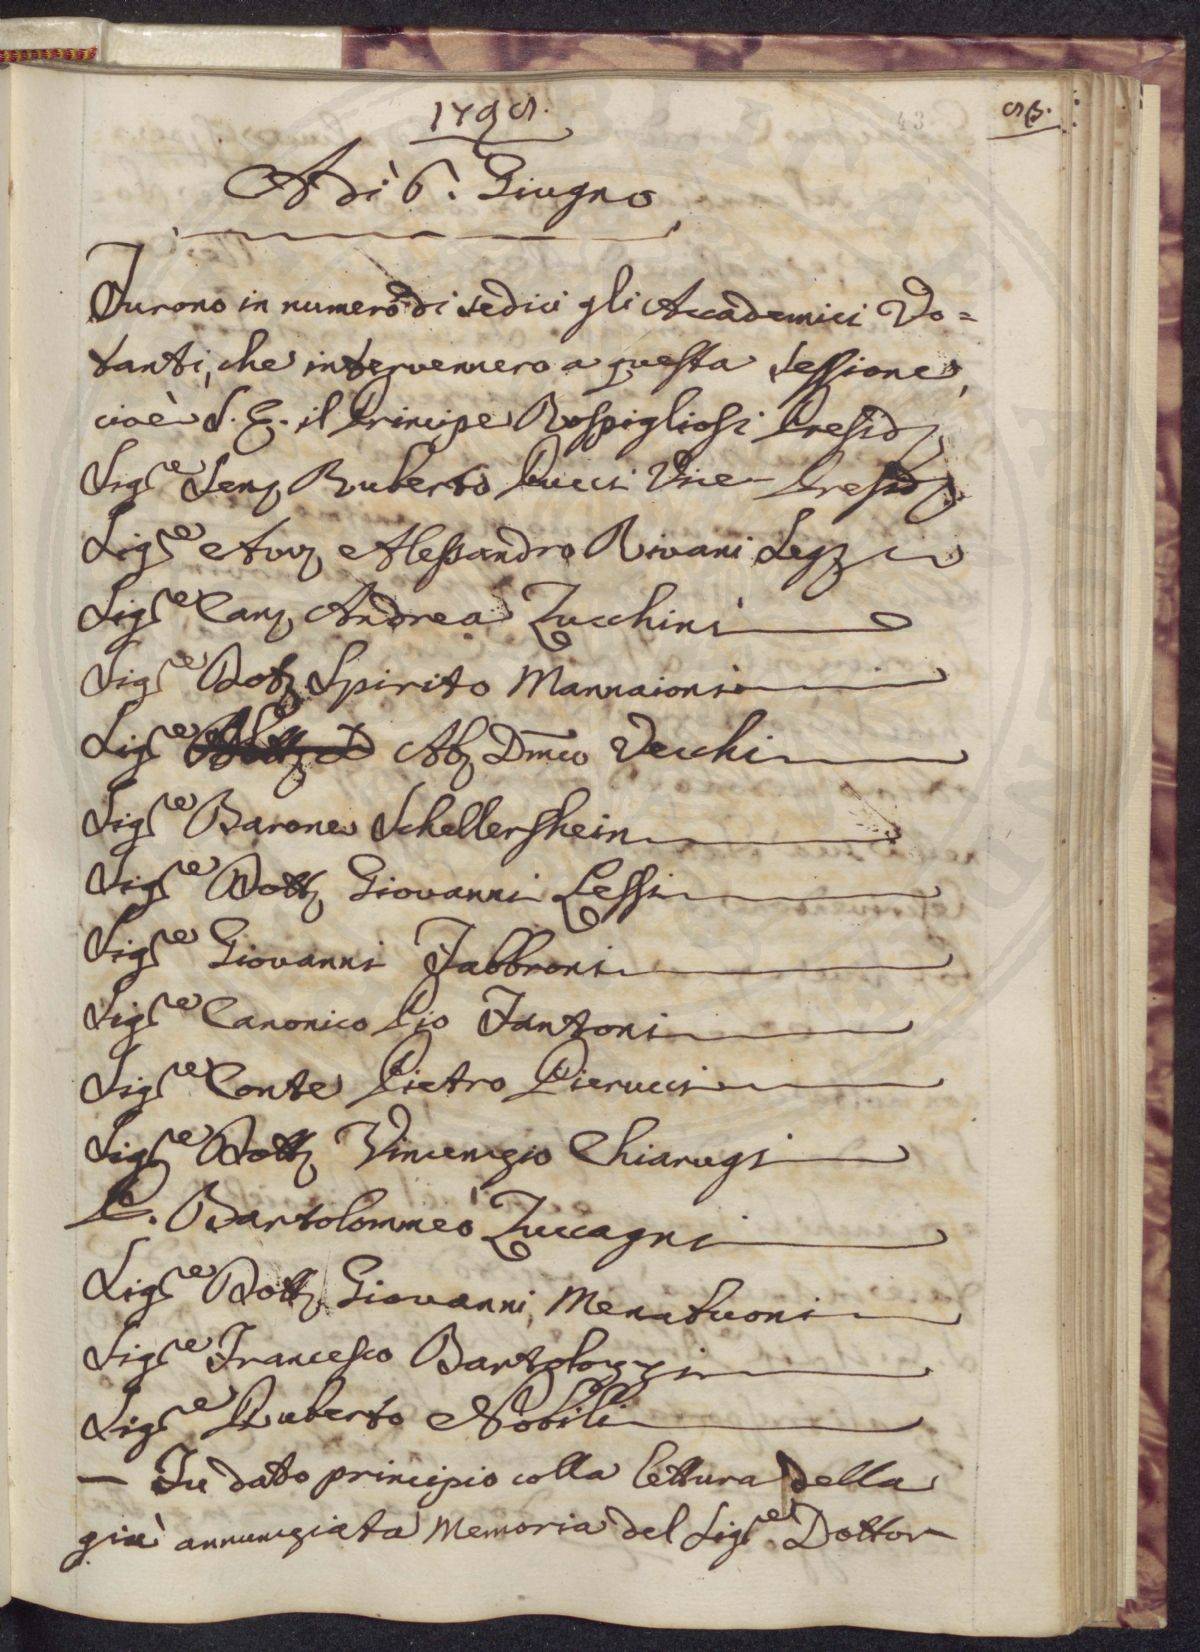 1795.
43
Adì 6. Giugno
Furono in numero di sedici gli Accademici Vo=
tanti, che intervennero a questa Sessione,
cioè S. E. il Principe Rospigliosi Presid.
Sig.re Sen. Ruberto Pucci Vice-Presid.
Sig.re Avv. Alessandro Rivani
Sig.re Can. Andrea Zucchini
Sig.re Dot. Spirito Mannaioni
Sig.re Ab. Dmco Vecchi
Sig.re Barone Schellershein
Sig.re Dott. Giovanni Lessi
Sig.re Giovanni Fabbroni
Sig.re Canonico Pio Fantoni
Sig.re Conte Pietro Pierucci
Sig.re Dott. Vincenzio Chiarugi
Bartolommeo Zuccagni
Sig.re Dott. Giovanni Menabuoni
Sig.re Francesco Bartolozzi
Sig.re Ruberto Nobili
— Fu dato principio colla lettura della
già annunziata Memoria del Sig.re Dottor